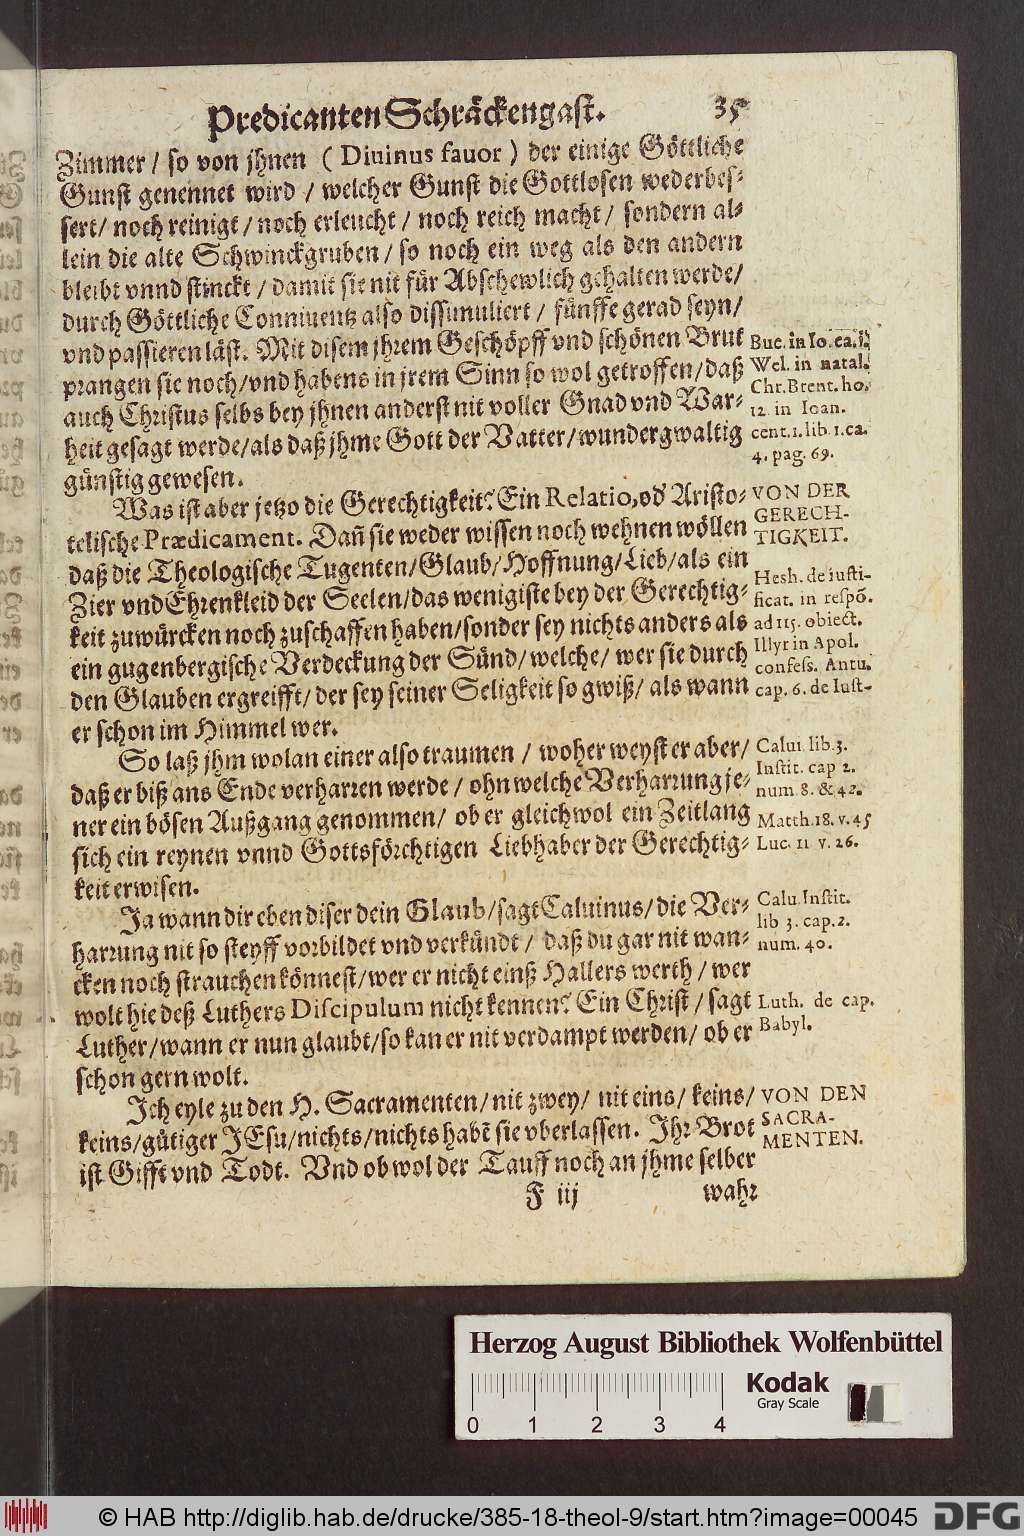 Predicanten Schräckengast. 35
Zimmer / so von jhnen ( Diuinus fauor ) der einige Göttliche
Gunst genennet wird / welcher Gunst die Gottlosen weder bes-
sert / noch reinigt / noch erleucht / noch reich macht / sondern al-
lein die alte Schwinckgruben / so noch ein weg als den andern
bleibt vnnd stinckt / damit sie nit für Abschewlich gehalten werde /
durch Göttliche Conniuentz also dissimuliert / fünffe gerad seyn /
vnd passieren läst. Mit disem jhrem Geschöpff vnd schönen Brut
prangen sie noch / vnd habens in jrem Sinn so wol getroffen / daß
auch Christus selbs bey jhnen anderst nit voller Gnad vnd War-
heit gesagt werde / als daß jhme Gott der Vatter / wundergwaltig
günstig gewesen.
Buc. in Io. ca. 1.
Wel. in natal.
Chr. Brent. ho.
12. in Ioan.
cent. 1. lib. 1. ca.
4. pag. 69.
Was ist aber jetzo die Gerechtigkeit? Ein Relatio, od' Aristo-
telische Prædicament. Dañ sie weder wissen noch wehnen wöllen
daß die Theologische Tugenten / Glaub / Hoffnung / Lieb / als ein
Zier vnd Ehrenkleid der Seelen / das wenigiste bey der Gerechtig-
keit zuwürcken noch zuschaffen haben / sonder sey nichts anders als
ein gugenbergische Verdeckung der Sünd / welche / wer sie durch
den Glauben ergreifft / der sey seiner Seligkeit so gwiß / als wann
er schon im Himmel wer.
VON DER
GERECH-
TIGKEIT.
Hesh. de iusti-
ficat. in respõ.
ad 115. obiect.
Illyr in Apol.
confess. Antu.
cap. 6. de Iust-
So laß jhm wolan einer also traumen / woher weyst er aber /
daß er biß ans Ende verharren werde / ohn welche Verharrung je-
ner ein bösen Außgang genommen / ob er gleichwol ein Zeitlang
sich ein reynen vnnd Gottsförchtigen Liebhaber der Gerechtig-
keit erwisen.
Calui. lib. 3.
Instit. cap 2.
num 8. & 42.
Matth. 18. v. 45
Luc. 11 v. 26.
Ja wann dir eben diser dein Glaub / sagt Caluinus / die Ver-
harrung nit so steyff vorbildet vnd verkündt / daß du gar nit wan-
cken noch strauchen könnest / wer er nicht einß Hallers werth / wer
wolt hie deß Luthers Discipulum nicht kennen? Ein Christ / sagt
Luther / wann er nun glaubt / so kan er nit verdampt werden / ob er
schon gern wolt.
Calu. Instit.
lib 3. cap. 2.
num. 40.
Luth. de cap.
Babyl.
Ich eyle zu den H. Sacramenten / nit zwey / nit eins / keins /
keins / gütiger JEsu / nichts / nichts habẽ sie vberlassen. Ihr Brot
ist Gifft vnd Todt. Vnd ob wol der Tauff noch an jhme selber
VON DEN
SACRA-
MENTEN.
F iij wahr
Herzog August Bibliothek Wolfenbüttel
Kodak
Gray Scale
0 1 2 3 4
© HAB http://diglib.hab.de/drucke/385-18-theol-9/start.htm?image=00045
DFG